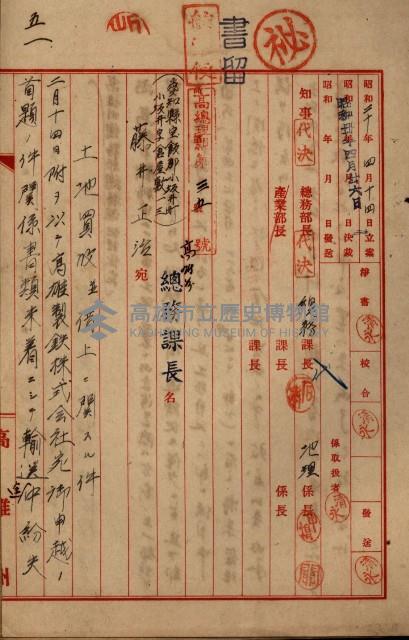 秘
書留
昭和二十年四月十四日立案
昭和廿年四月廿六日決裁
昭和 年 月 日發送
淨書
校合
發送
知事 代決
總務部長 代決
產業部長
總務課長
課長
課長
地理係長
係長
係取扱者
高總地
三
號
總務課長名
愛知縣宝飯郡小坂井町
小坂井字倉屋敷一三
藤井正治 宛
土地買收並借上ニ関スル件
二月十四日附ヲ以テ高雄製鉄株式会社宛御申越ノ
首題ノ件関係書類未着ニシテ輸送中紛失
五一
高雄州
高雄市立歷史博物館
KAOHSIUNG MUSEUM OF HISTORY